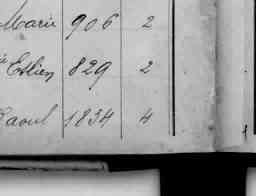 Marie 906 2
Estlien 829 2
Raoul 1834 4